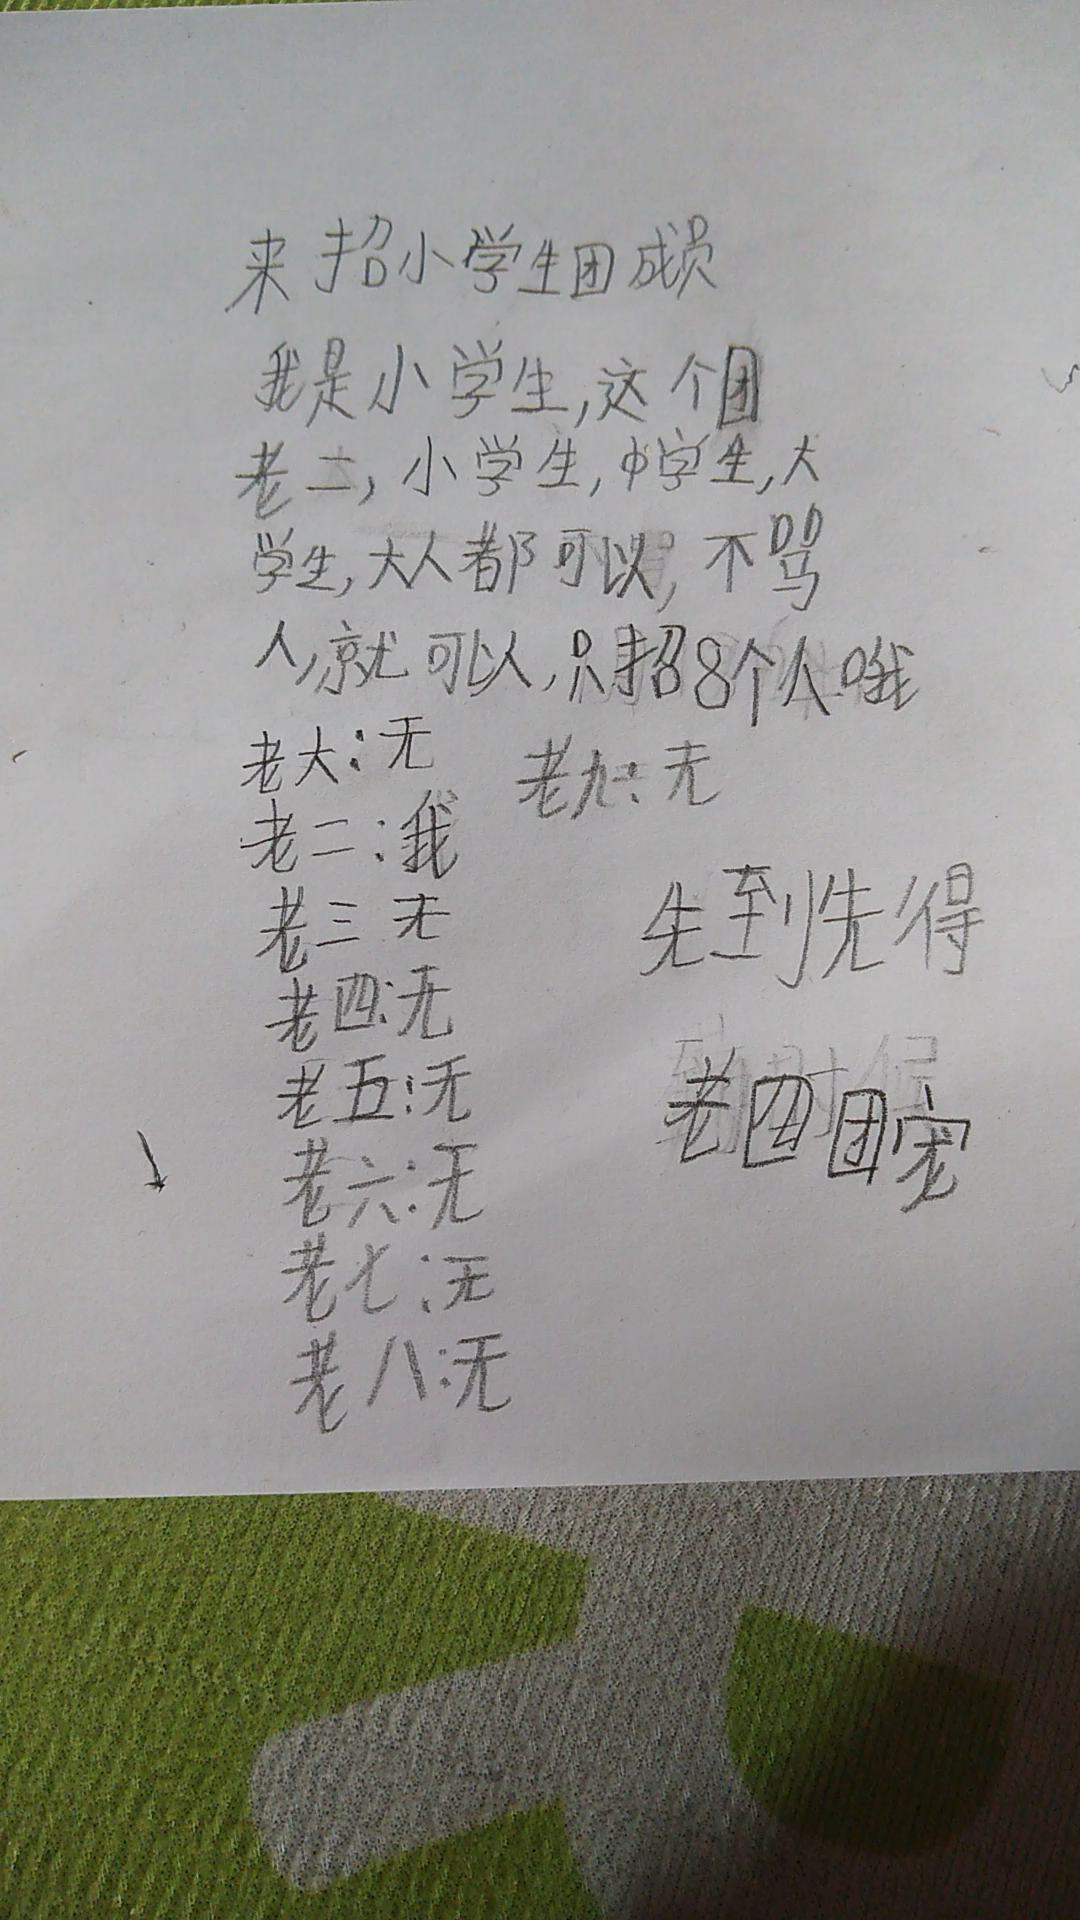 来招小学生团成员
我是小学生,这个团
老二,小学生,中学生,大
学生,大人都可以,不骂
人,就可以人,只招8个人哦
老大:无
老二:我
老三 无
老四:无
老五:无
老六:无
老七:无
老八:无
老九:无
先到先得
老四团宠